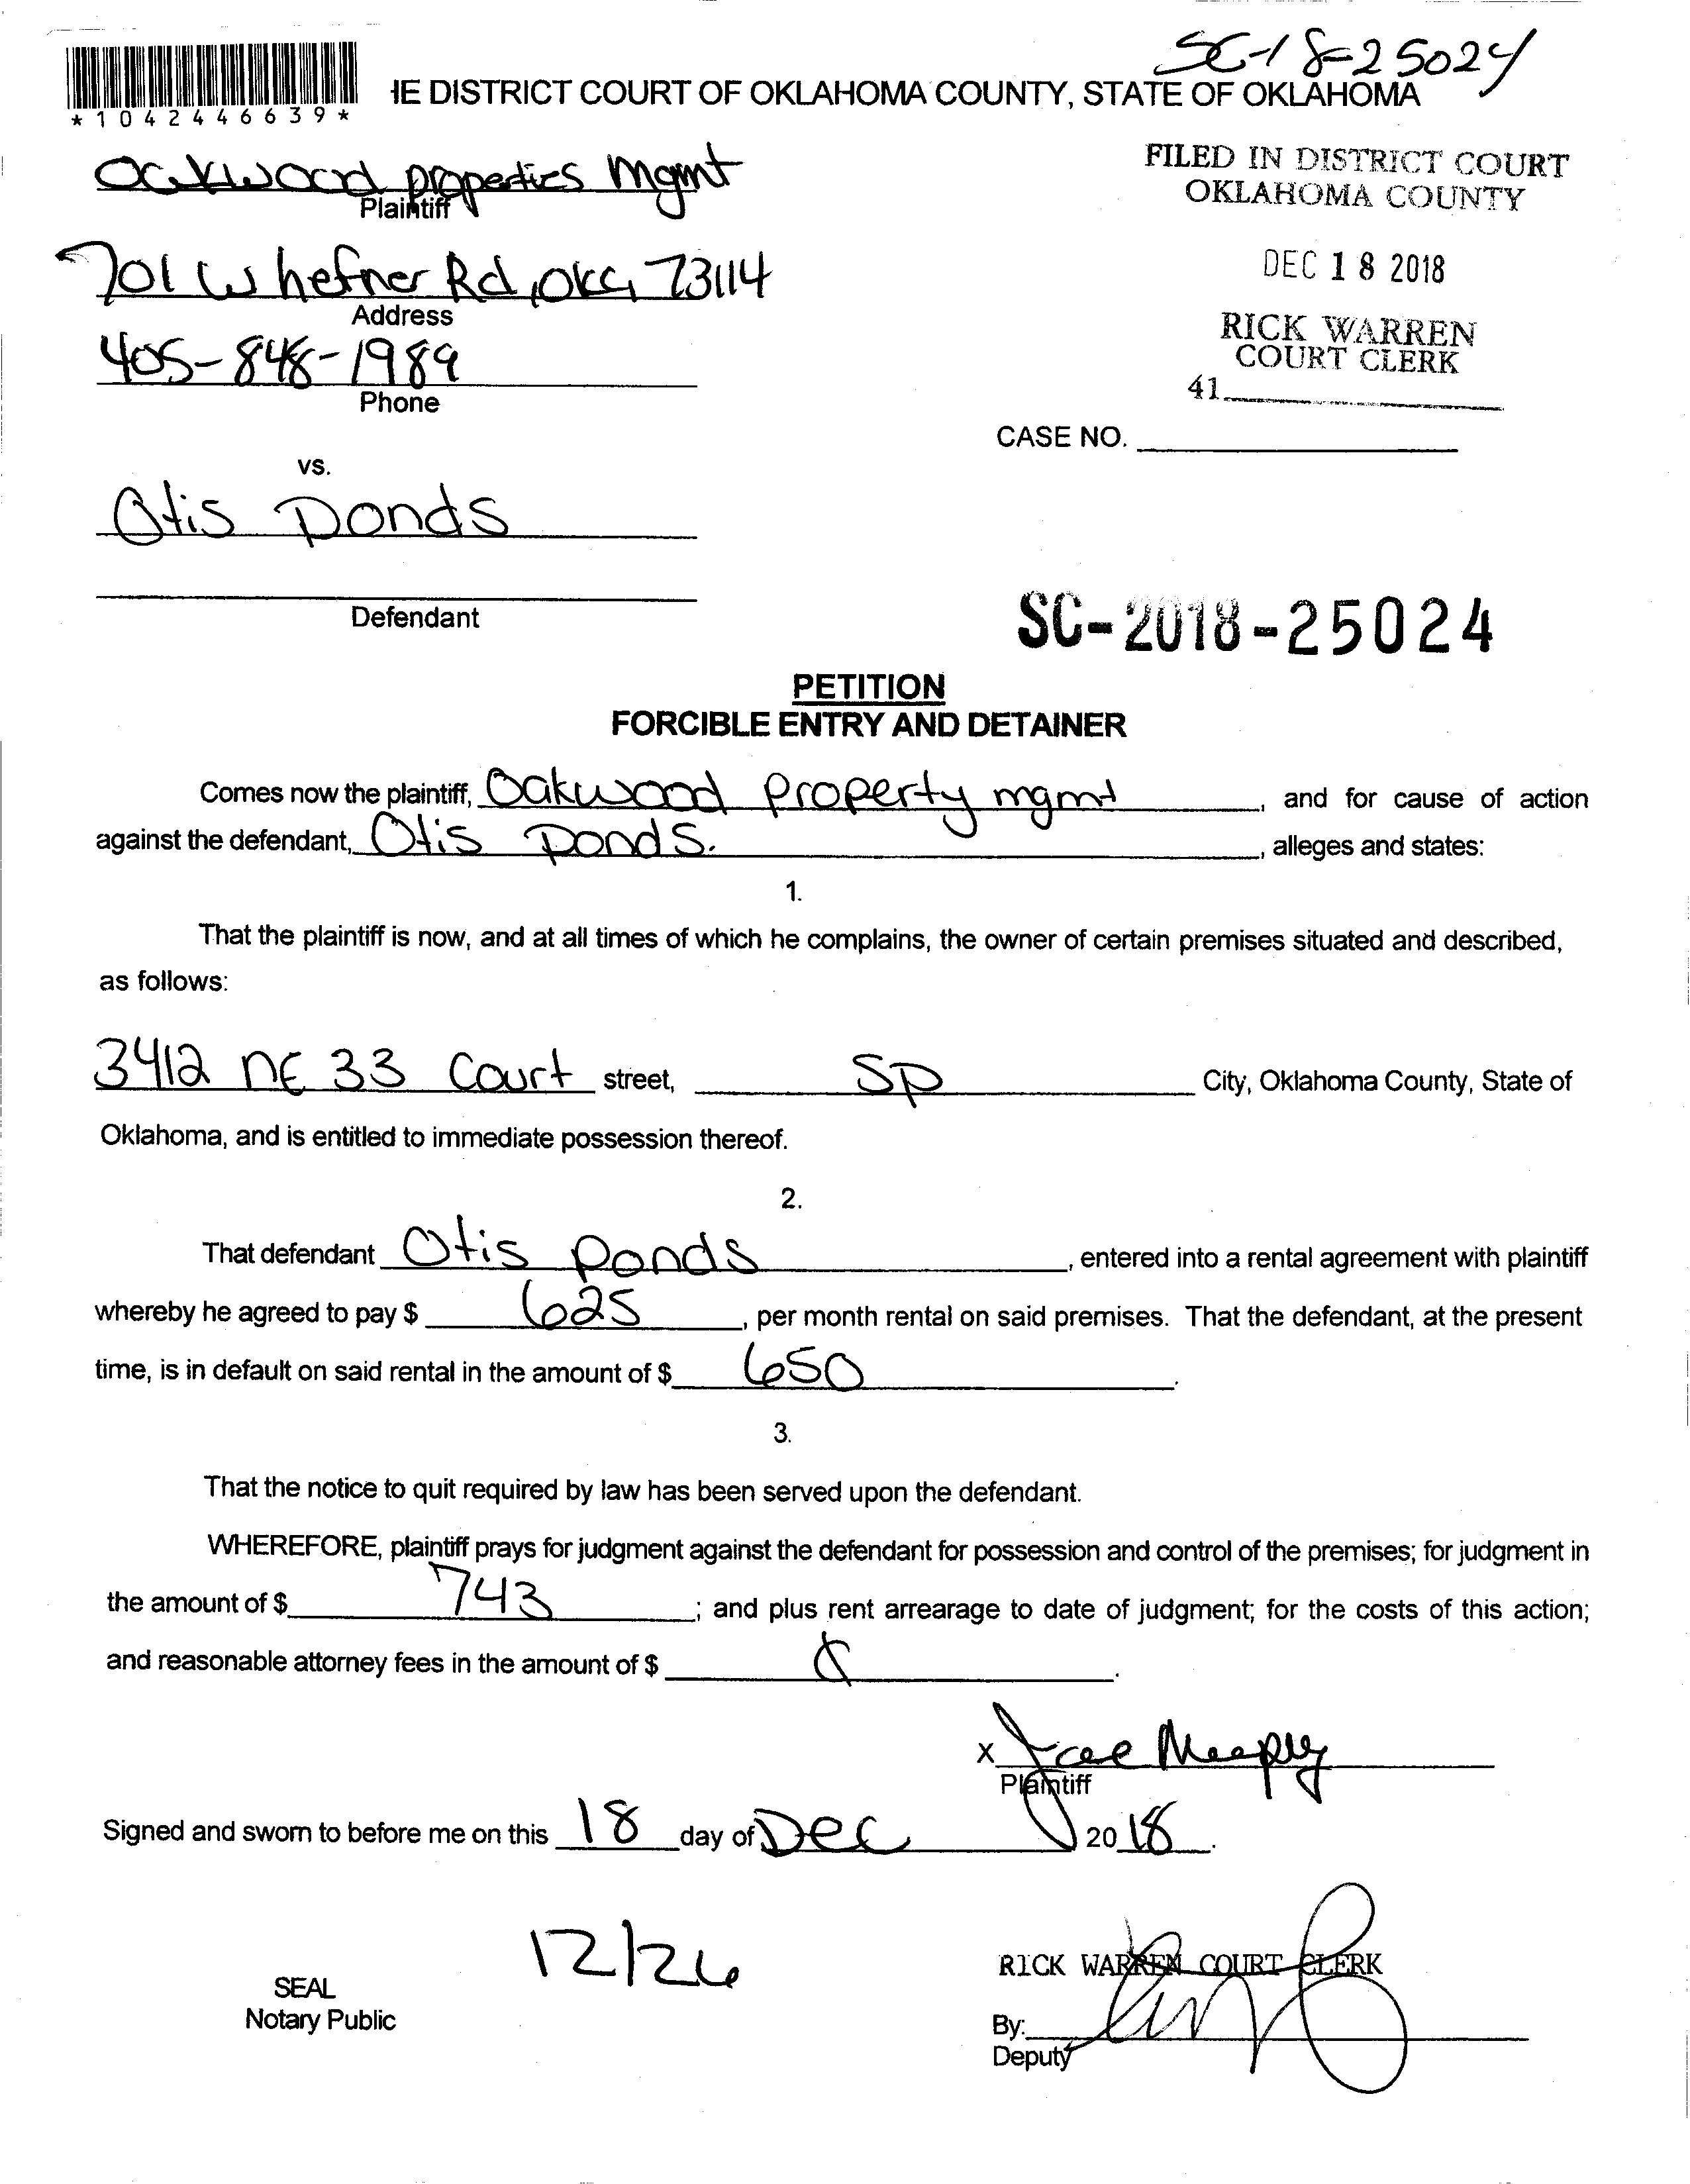 SC-18-25024
*1042446639*
HE DISTRICT COURT OF OKLAHOMA COUNTY, STATE OF OKLAHOMA
Oakwood properties Mgmt
Plaintiff
FILED IN DISTRICT COURT
OKLAHOMA COUNTY
701 W hefner Rd, OKC, 73114
Address
DEC 18 2018
405-848-1989
Phone
RICK WARREN
COURT CLERK
41
CASE NO.
vs.
Otis Ponds
Defendant
SC-2018-25024
PETITION
FORCIBLE ENTRY AND DETAINER
Comes now the plaintiff, Oakwood Property mgmt, and for cause of action
against the defendant, Otis Ponds., alleges and states:
1.
That the plaintiff is now, and at all times of which he complains, the owner of certain premises situated and described,
as follows:
3412 NE 33 Court street, SP City, Oklahoma County, State of
Oklahoma, and is entitled to immediate possession thereof.
2.
That defendant Otis Ponds, entered into a rental agreement with plaintiff
whereby he agreed to pay $ 625, per month rental on said premises. That the defendant, at the present
time, is in default on said rental in the amount of $ 650.
3.
That the notice to quit required by law has been served upon the defendant.
WHEREFORE, plaintiff prays for judgment against the defendant for possession and control of the premises; for judgment in
the amount of $ 743; and plus rent arrearage to date of judgment; for the costs of this action;
and reasonable attorney fees in the amount of $ .
X
Plaintiff
Signed and sworn to before me on this 18 day of Dec 2018.
12/26
SEAL
Notary Public
RICK WARREN COURT CLERK
By:
Deputy